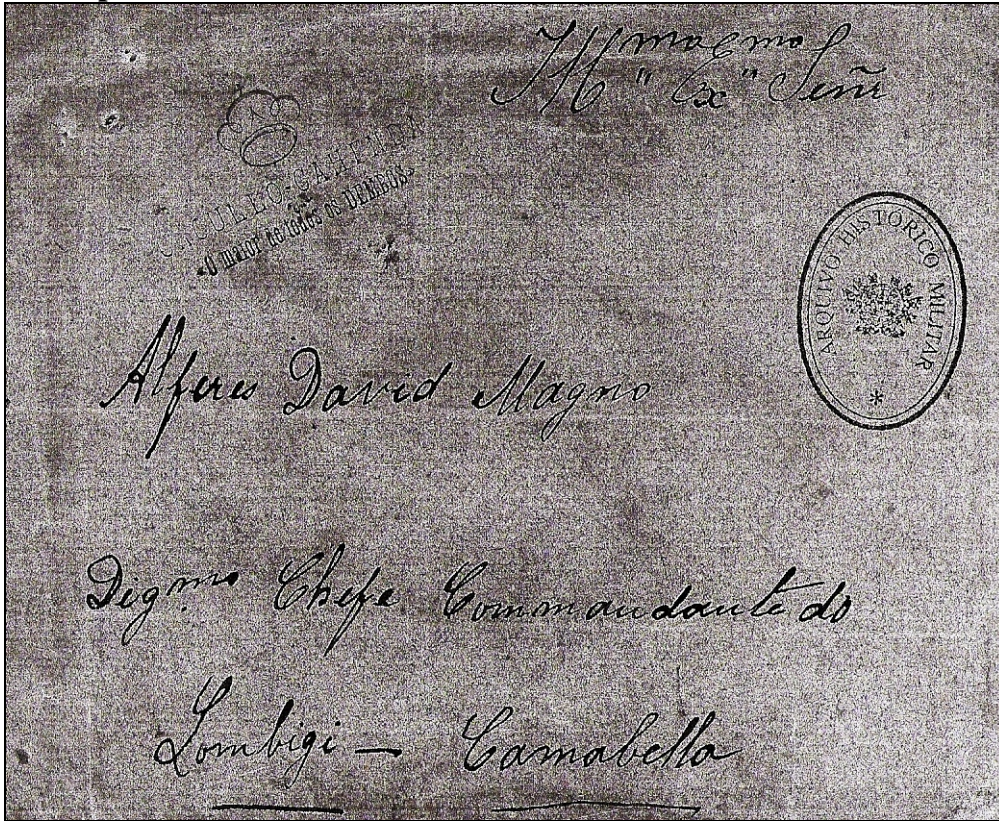 Ill^mo e Ex^mo Señr
«O maior de todos os DEMBOS»
ARQUIVO HISTORICO MILITAR
*
Alferes David Magno
Dig^mo Chefe Commandante do
Lombigi — Camabella